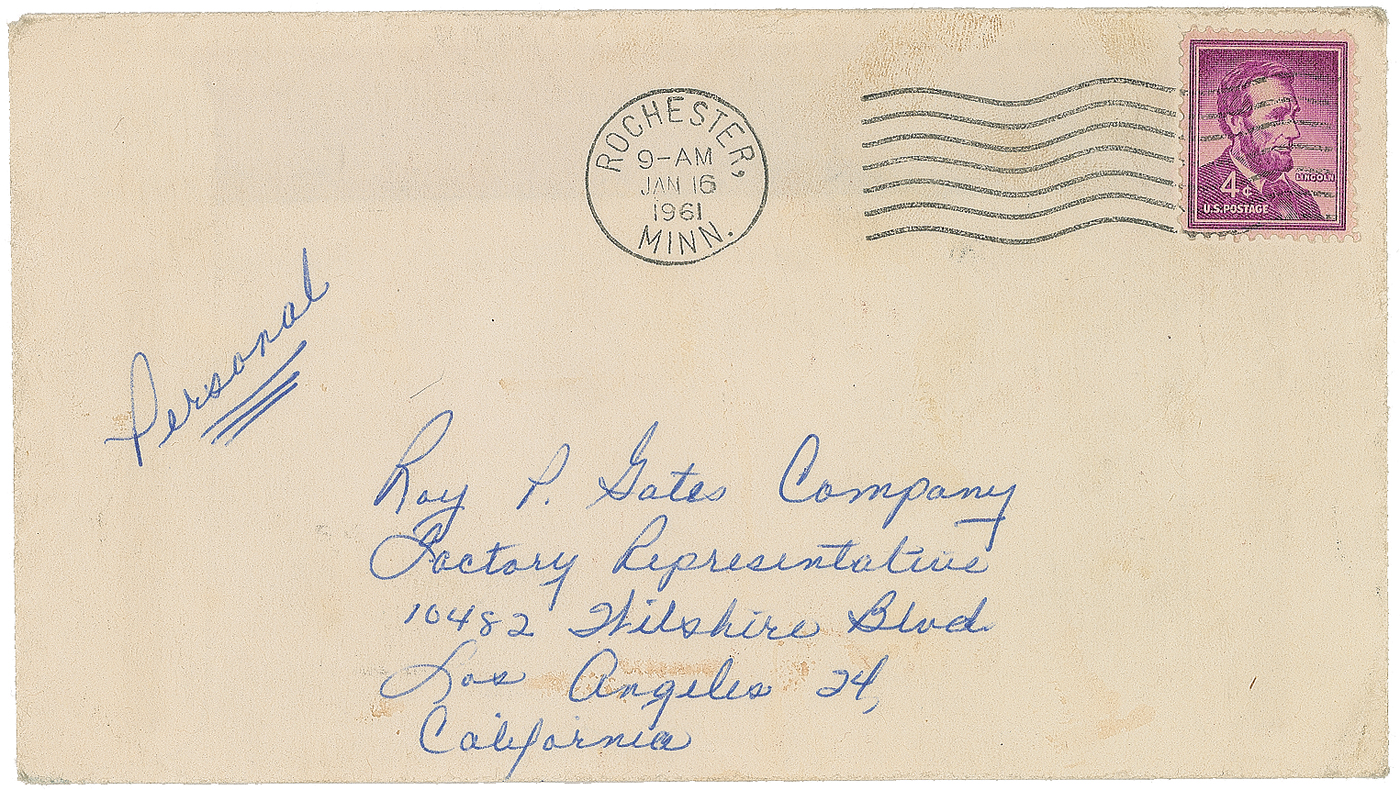 ROCHESTER,
9-AM
JAN 16
1961
MINN.
LINCOLN
4¢
U.S. POSTAGE
Personal
Roy P. Gates Company
Factory Representative
10482 Wilshire Blvd
Los Angeles 24,
California